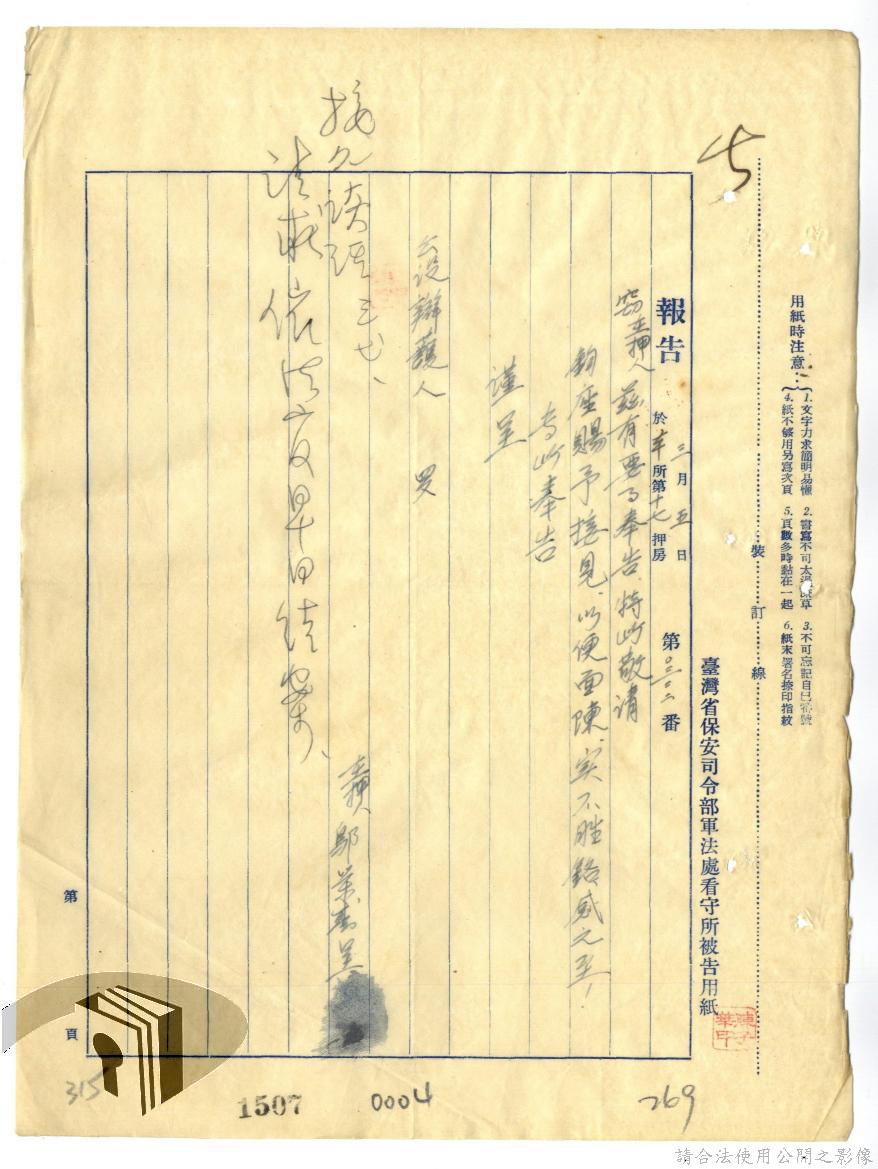 用紙時注意：
1.文字力求簡明易懂 2.書寫不可太潦草 3.不可忘記自己番號
4.紙不够用另寫次頁 5.頁數多時黏在一起 6.紙末署名捺印指紋
裝訂線
七
臺灣省保安司令部軍法處看守所被告用紙
陳子華印
報告
三月五日
於 所第十七押房
第 番
窃在押人兹有要事奉告,特此敬請
鈞座賜予接見,以便面陳,实不胜銘感之至!
專此奉告
謹呈
公設辯護人 罗
在押人 鄔 呈
接见談話
請 依法 早日結案、
第 頁
315
1507
0004
269
請合法使用公開之影像